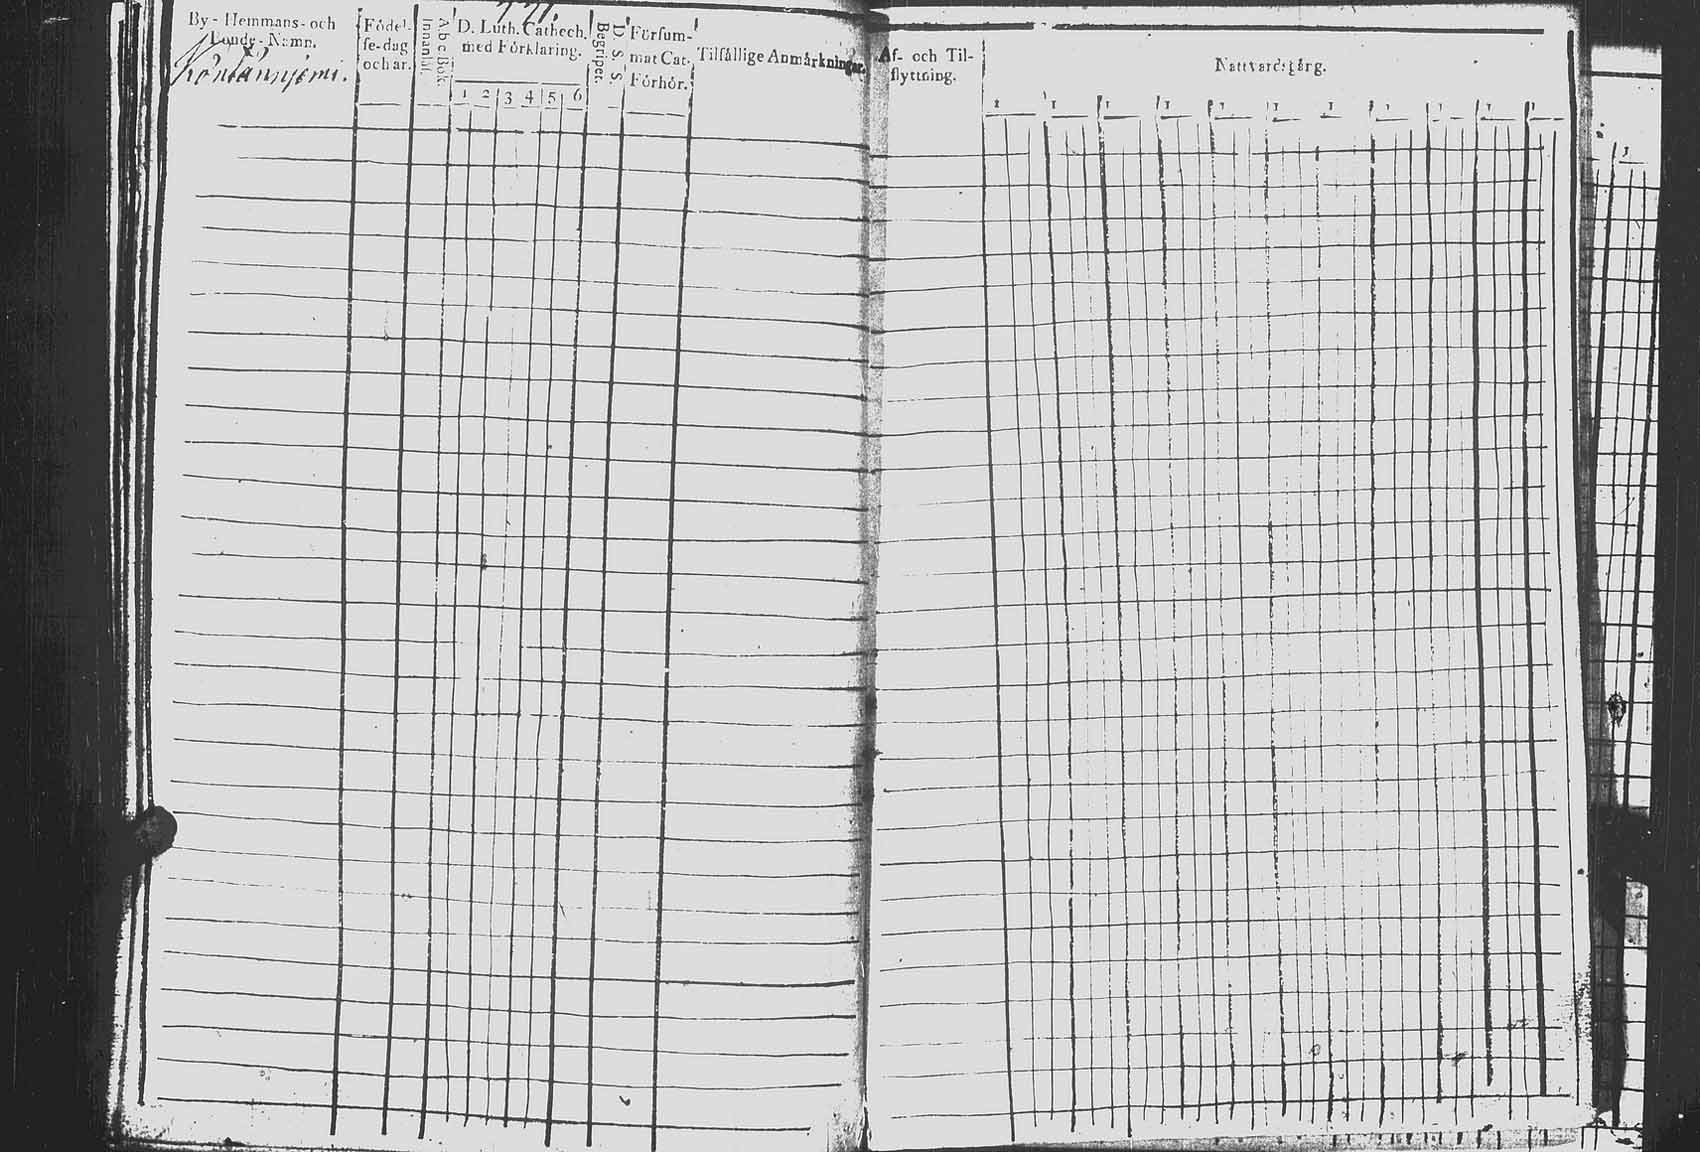 By- Hemmans- och
Bonde- Namn.
Födel-
se-dag
och år.
A b c Bok.
Innantil.
D. Luth. Cathech.
med Förklaring.
1 2 3 4 5 6
D. S. S.
Begripet.
Försum-
mat Cat.
Förhör.
Tilfällige Anmärkningar.
Af- och Til-
flyttning.
Nattvardsgång.